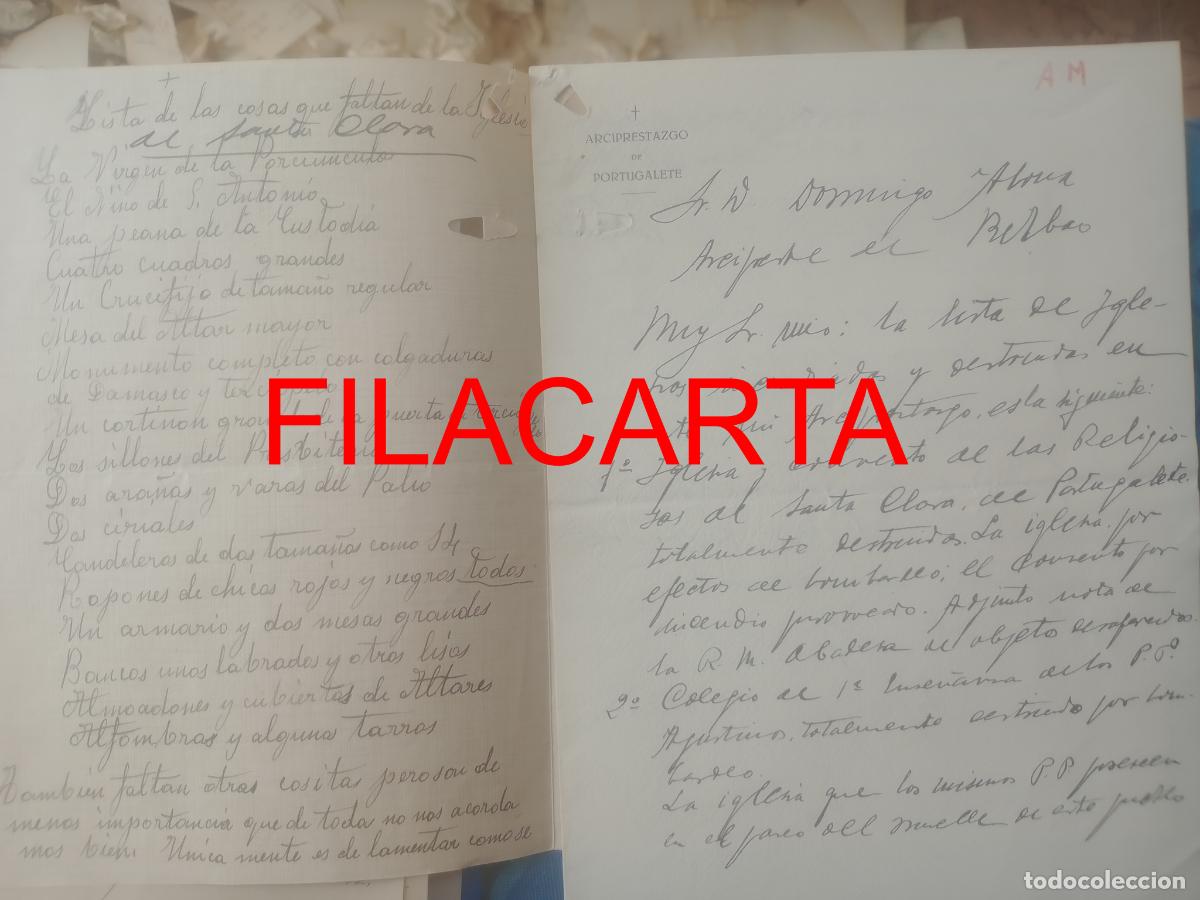 +
Lista de las cosas que faltan de la Iglesia
de Santa Clara
La Virgen de la Porciuncula
El Niño de S. Antonio
Una peana de la Custodia
Cuatro cuadros grandes
Un Crucifijo de tamaño regular
Mesa del Altar mayor
Monumento completo con colgaduras
de Damasco y terciopelo
Un cortinon de la puerta
Los sillones del Presbiterio
Dos arañas y varas del Palio
Dos ciriales
Candeleros de dos tamaños como
Ropones de chicos rojos y negros todos.
Un armario y dos mesas grandes
Bancos unos labrados y otros lisos
Almoadones y cubiertas de Altares
Alfombras y alguna tarros
También faltan otras cositas pero son de
menos importancia que de toda no nos acorda
mos bien. Unica mente es de lamentar como se
AM
✝
ARCIPRESTAZGO
DE
PORTUGALETE
Sr. D. Domingo Abona
Arcipreste de Bilbao
Muy Sr. mio: la lista de Igle-
sias y destruidas en
mi Arciprestazgo, es la siguiente:
1º Iglesia y convento de las Religio-
sas de Santa Clara, de Portugalete.
totalmente destruidos. La iglesia, por
efectos de bombardeo; el convento por
incendio provocado. Adjunto nota de
la R. M. Abadesa de objetos desaparecidos.
2º Colegio de 1ª Enseñanza de los P.P.
Agustinos, totalmente destruido por bom-
bardeo.
La iglesia que los mismos P.P. poseen
en el paseo del Muelle de este pueblo
FILACARTA
todocoleccion